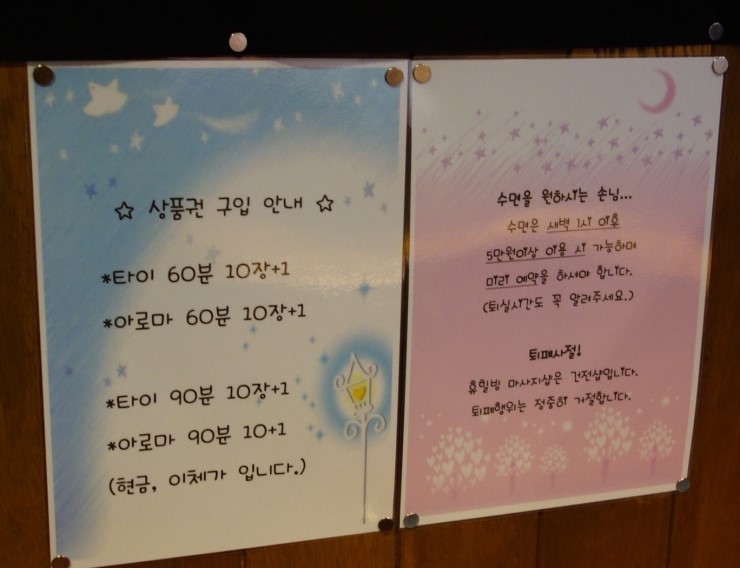 ☆ 상품권 구입 안내 ☆
*타이 60분 10장+1
*아로마 60분 10장+1
*타이 90분 10장+1
*아로마 90분 10+1
(현금, 이체가 입니다.)
수면을 원하시는 손님...
수면은 새벽 1시 이후
5만원이상 이용 시 가능하며
미리 예약을 하셔야 합니다.
(퇴실시간도 꼭 알려주세요.)
퇴폐사절!
휴힐링 마사지샵은 건전샵입니다.
퇴폐행위는 정중히 거절합니다.